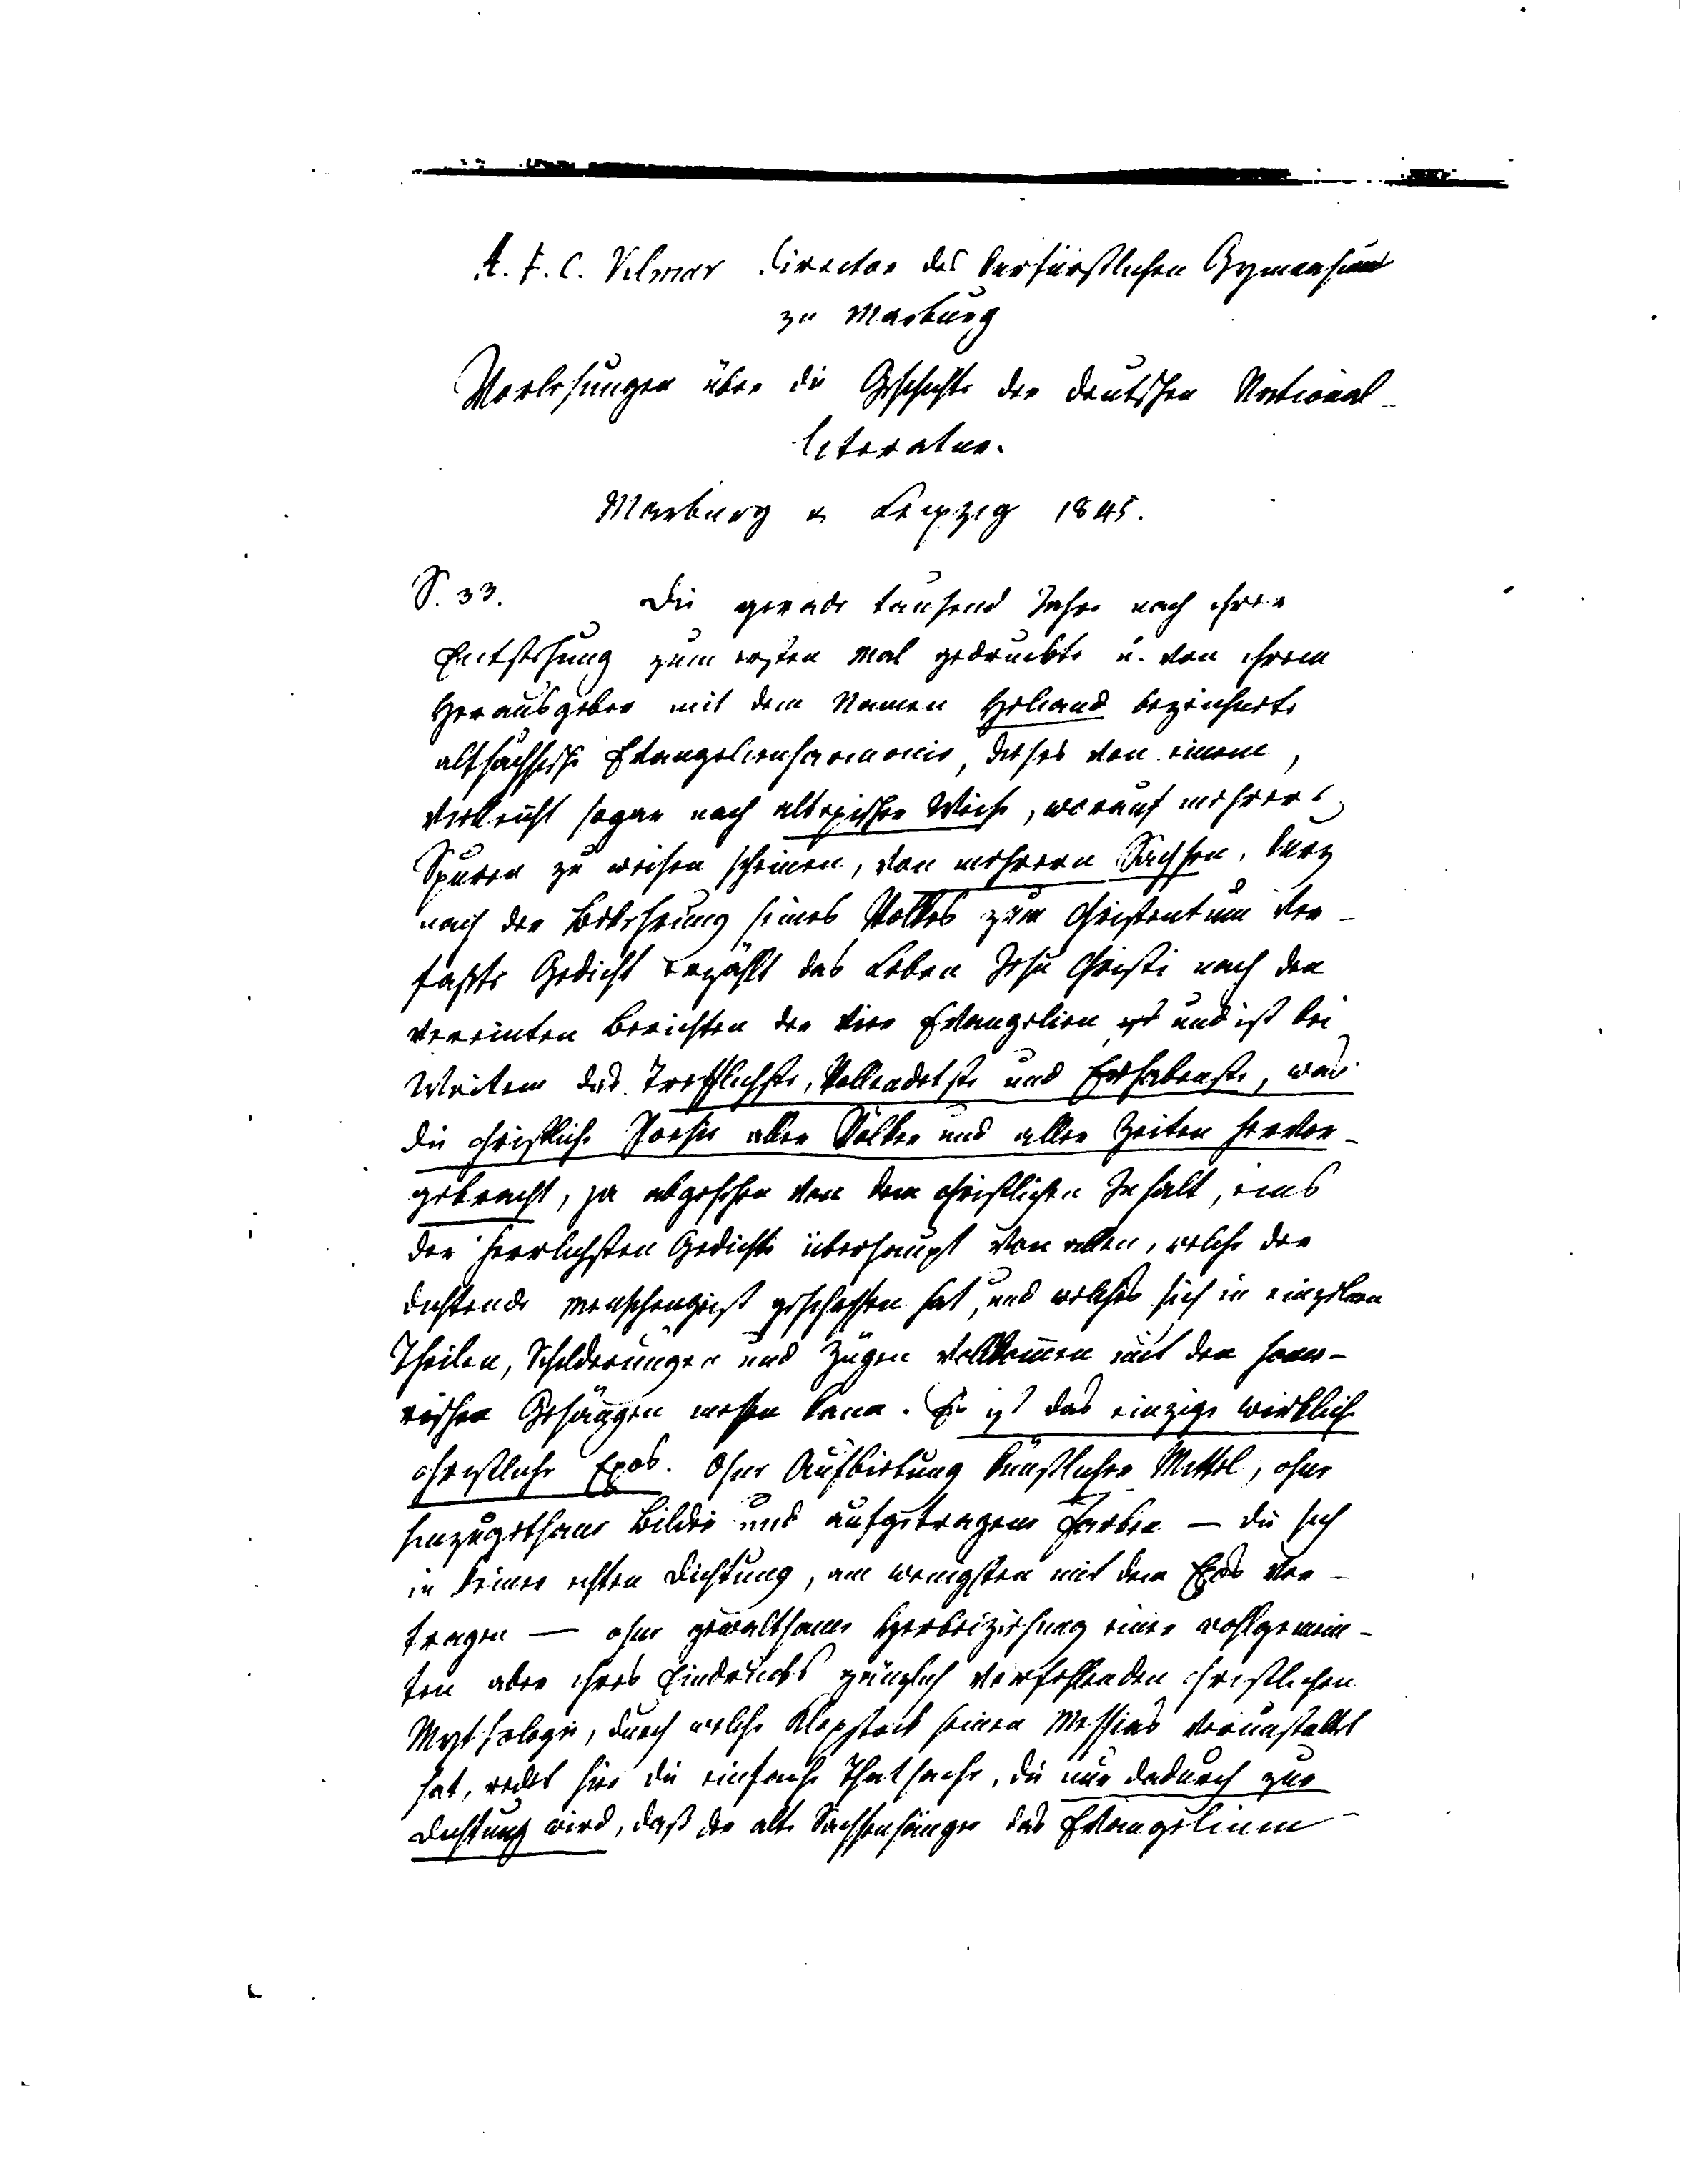 A. F. C. Vilmar Director des kurfürstlichen Gymnasiums
zu Marburg
Vorlesungen über die Geschichte der deutschen National-
literatur.
Marburg u Leipzig 1845.
S. 33. Die gerade tausend Jahre nach ihrer
Entstehung zum ersten Mal gedruckte u. von ihrem
Herausgeber mit dem Namen Heliand bezeichnete
altsächsische Evangelienharmonie, dieses von einem,
vielleicht sogar nach altepischer Weise, worauf mehrere
Spuren zu weisen scheinen, von mehrern Sachsen, kurz
nach der Bekehrung seines Volkes zum Christentum ver-
faßte Gedicht erzählt das Leben Jesu Christi nach den
vereinten Berichten der vier Evangelien und ist bei
Weitem das Trefflichste, Vollendetste und Erhabenste, was
die christliche Poesie aller Völker und aller Zeiten hervor-
gebracht, ja abgesehen von dem christlichen Inhalt, eins
der herrlichsten Gedichte überhaupt von allen, welche der
dichtende Menschengeist geschaffen hat, und welches sich in einzelnen
Theilen, Schilderungen und Zügen vollkommen mit den home-
rischen Gesängen messen kann. Es ist das einzige wirklich
christliche Epos. Ohne Aufbietung künstlicher Mittel, ohne
hinzugethane Bilder und aufgetragene Farben — die sich
in keiner echten Dichtung, am wenigsten mit dem Epos ver-
tragen — ohne gewaltsame Herbeiziehung einer wohlgemein-
ten aber ihres Eindrucks gänzlich verfehlenden christlichen
Mythologie, durch welche Klopstock seinen Messias verunstaltet
hat, redet hier die einfache Thatsache, die nur dadurch zur
Dichtung wird, daß der alte Sachsensänger das Evangelium